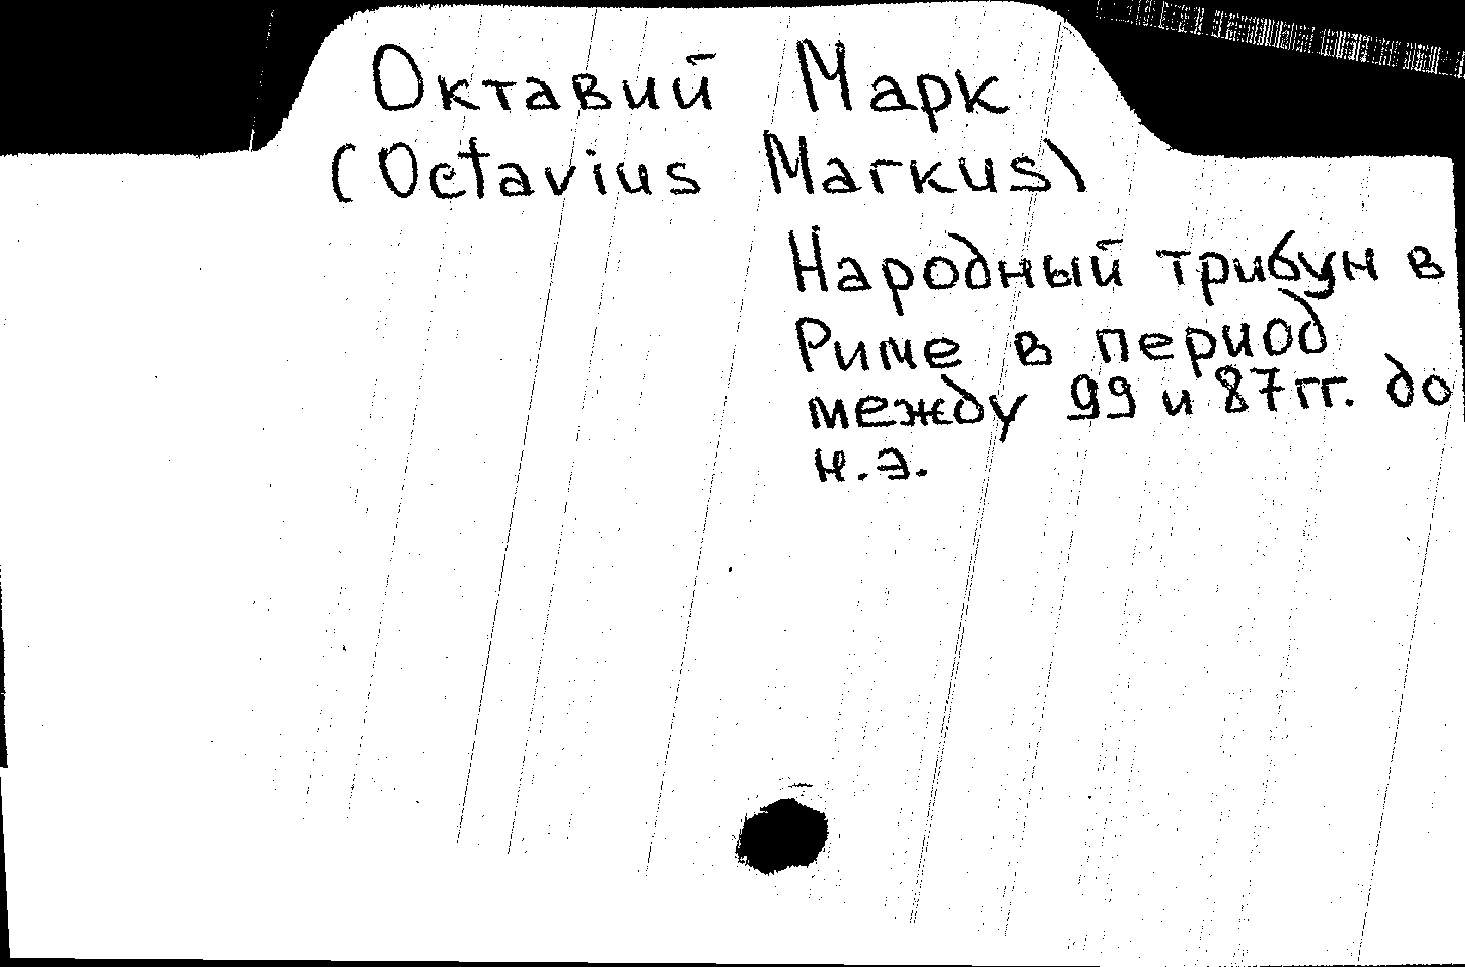 Октавий Марк
(Octavius Markus)
Народный трибун в
Риме в период
между 99 и 87 гг. до
н.э.